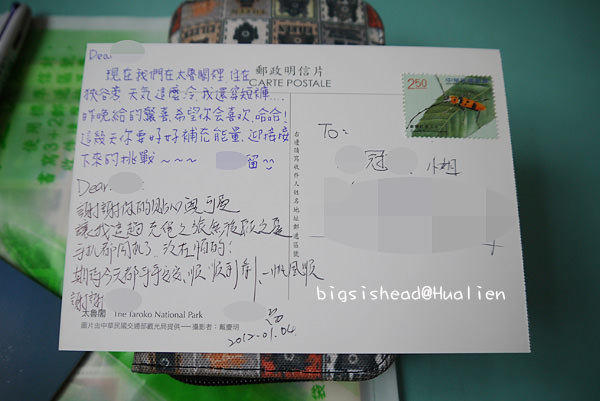 Dear
現在我們在太魯閣裡住在
峽谷旁 天氣這麼冷我還穿短褲....
昨晚給的驚喜,希望你會喜歡,哈哈!
這幾天你要好好補充能量,迎接接
下來的挑戰~~~
留
Dear
謝謝你的貼心與可愛
讓我這趟花蓮之旅無
手機都關機了..沒在怕的!
期待今天都平平安安、順順利利、一帆風順
謝謝
太魯閣 The Taroko National Park
圖片由中華民國交通部觀光局提供──攝影者:戴慶明
2012.01.04.
郵政明信片
CARTE POSTALE
2.50
To:
冠 小姐
右邊請寫收件人姓名地址郵遞區號
bigsishead@Hualien